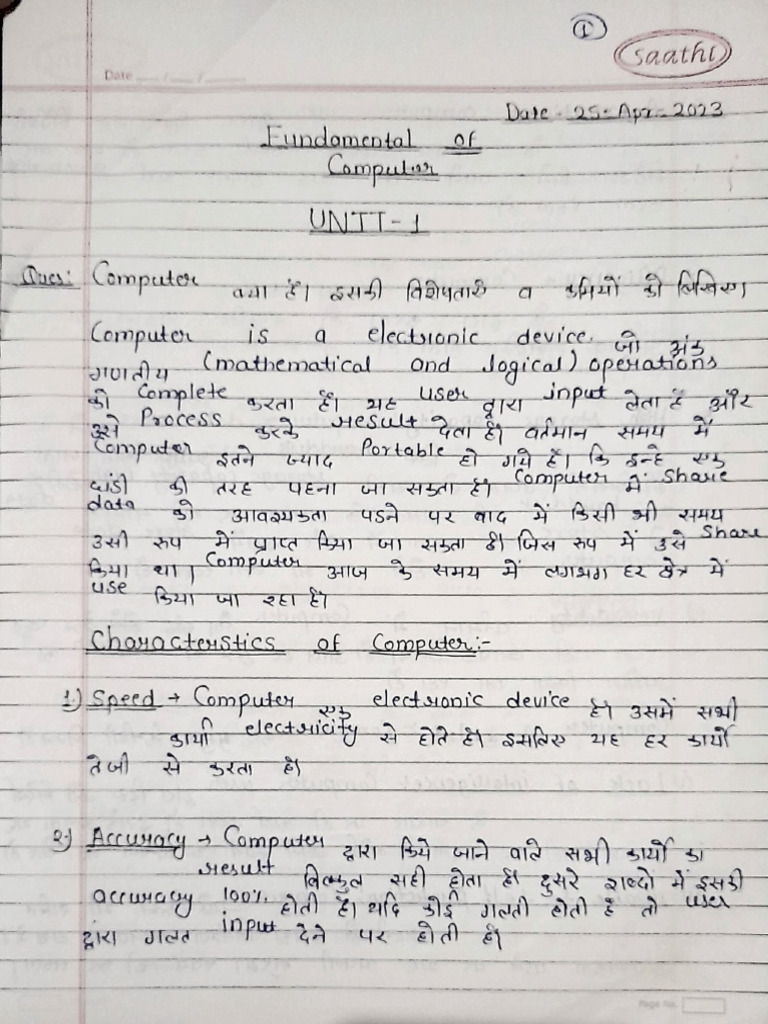 ①
Saathi
Date ___/___/___
Date - 25 - Apr - 2023
Fundamental of
Computer
UNIT-1
Ques: Computer क्या हैं। इसकी विशेषताएँ व कमियों को लिखिए।
Computer is a electronic device. जो अंक
गणतीय (mathematical and logical) operations
को Complete करता हैं। यह user द्वारा input लेता हैं और
उसे Process करके result देता हैं। वर्तमान समय में
Computer इतने ज्याद Portable हो गये हैं। कि इन्हे एक
घडी की तरह पहना जा सकता है। Computer में Share
data को आवश्यकता पडने पर बाद में किसी भी समय
उसी रुप में प्राप्त किया जा सकता हैं। जिस रुप में उसे Share
किया था। Computer आज के समय में लगभग हर क्षेत्र में
use किया जा रहा हैं।
Characterstics of Computer:-
1.) Speed → Computer एक electronic device हैं। उसमें सभी
कार्या electricity से होते हैं। इसलिए यह हर कार्यो
तेजी से करता हैं।
2.) Accuracy → Computer द्वारा किये जाने वाले सभी कार्यो का
result बिल्कुल सही होता हैं। दुसरे शब्दो में इसकी
accuracy 100% होती हैं। यदि कोई गलती होती हैं तो user
द्वारा गलत input देने पर होती हैं।
Page No.